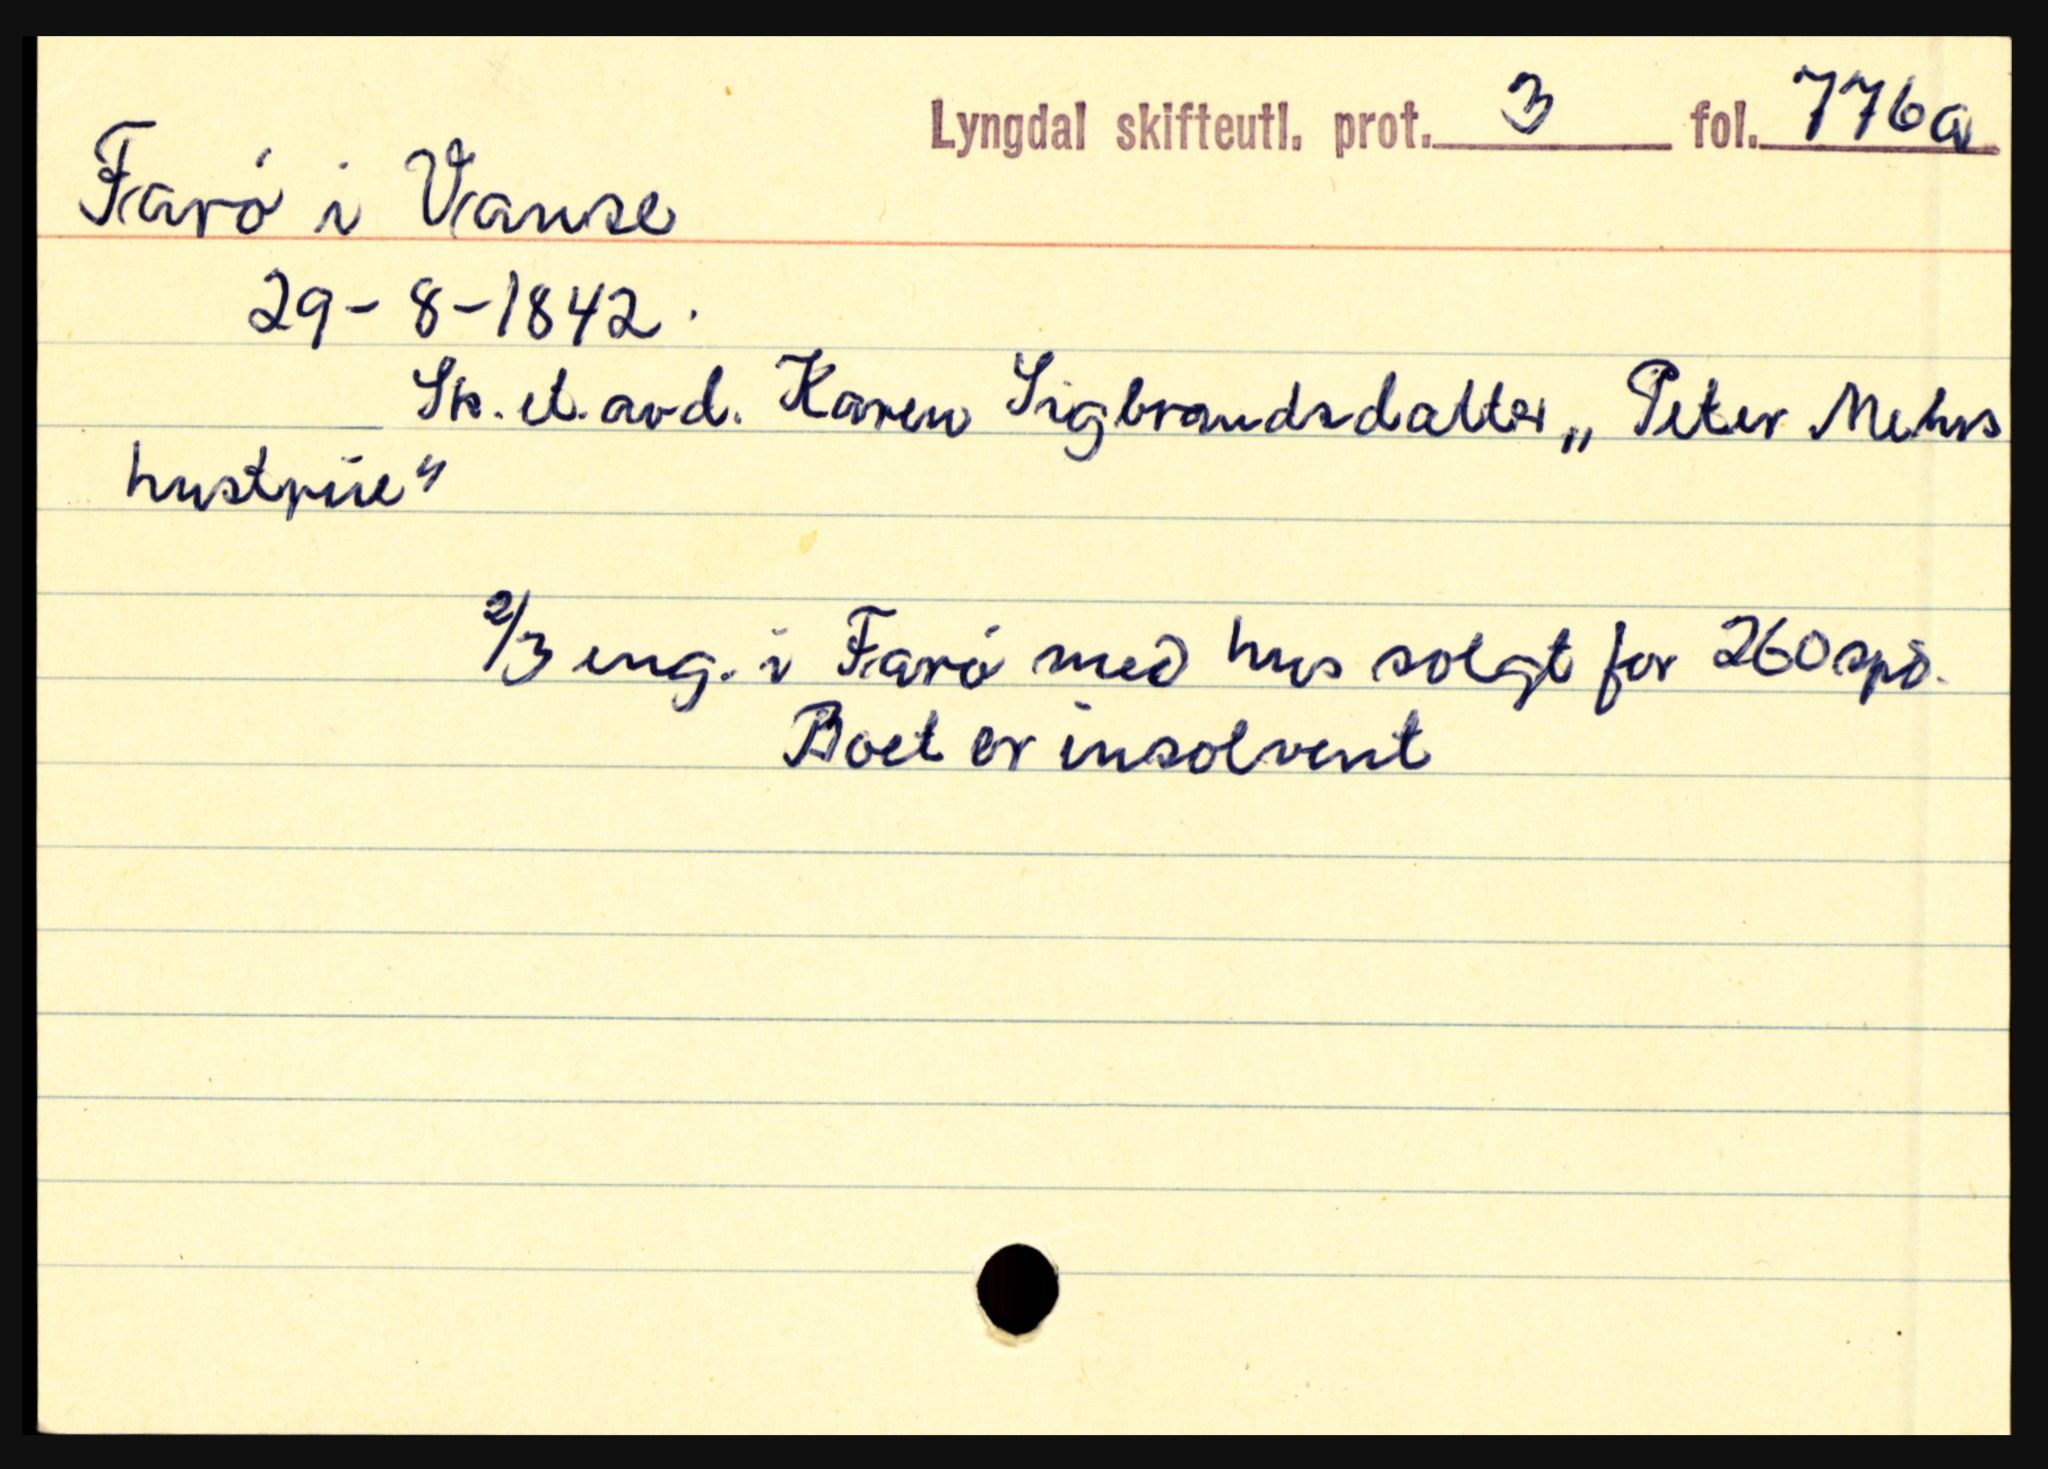 Lyngdal skifteutl. prot. 3 fol. 776a
Farö i Vanse
29-8-1842.
Sk. et. avd. Karen Sigbrandsdatter „ Peter Mehrs
hustrüe"
2/3 eng. i Farö med hus solgt for 260 spd.
Boet er insolvent